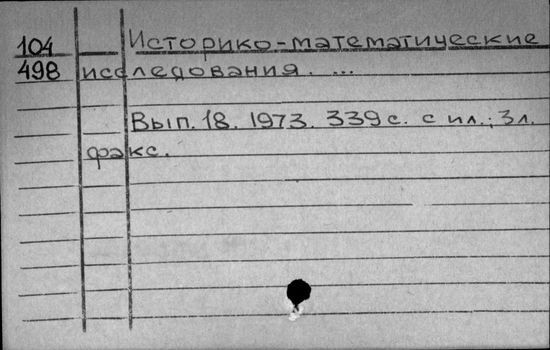 104 Историко-математические
498 исследования. ...
Вып. 18. 1973. 339 с. с ил.; 3 л.
факс.